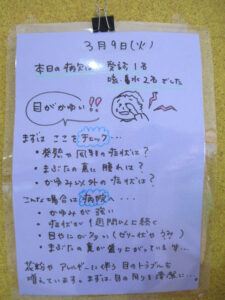 3月9日(火)
本日の病欠は… 発熱 1名
咳・鼻水 2名 でした
目がかゆい!!
まずは ここを チェック…
・発熱や 風邪の 症状は?
・まぶたの 裏に 腫れは?
・かゆみ以外の 症状は?
こんな場合は 病院へ…
・かゆみが 強い
・症状が 1週間以上続く
・目やにが多い(ゼリー状や うみ)
・まぶたの 裏が 盛り上がっている 等…
花粉や アレルギーに伴う 目のトラブルも
増えています。まずは、目の周りを 清潔に…